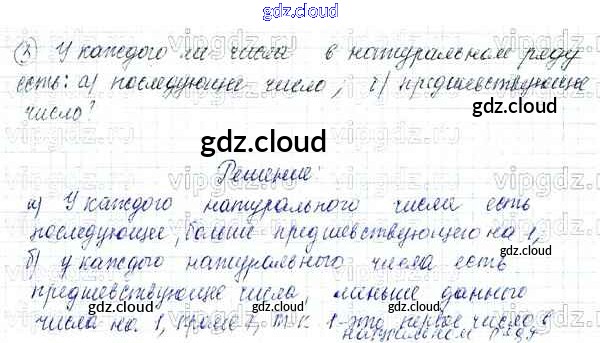 gdz.cloud
③ У каждого ли числа в натуральном ряду
есть: а) последующее число, б) предшевствующее
число?
gdz.cloud
gdz.cloud
Решение:
а) У каждого натурального числа есть
последующее, больше предшевствующего на 1,
gdz.cloud
б) у каждого натурального числа есть
gdz.cloud
предшевствующие числа, меньше данного
gdz.cloud
числа на 1, кроме 1, т.к 1-это первое число в
натуральном ряду